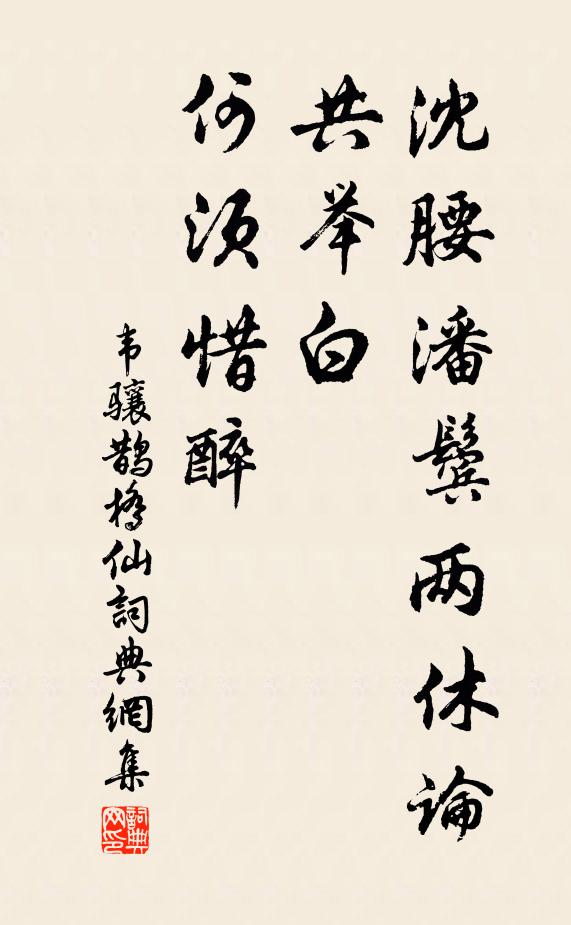 沈腰潘鬓两休论
共举白
何须惜醉
韦骧鹊桥仙詞典網集
詞典网印